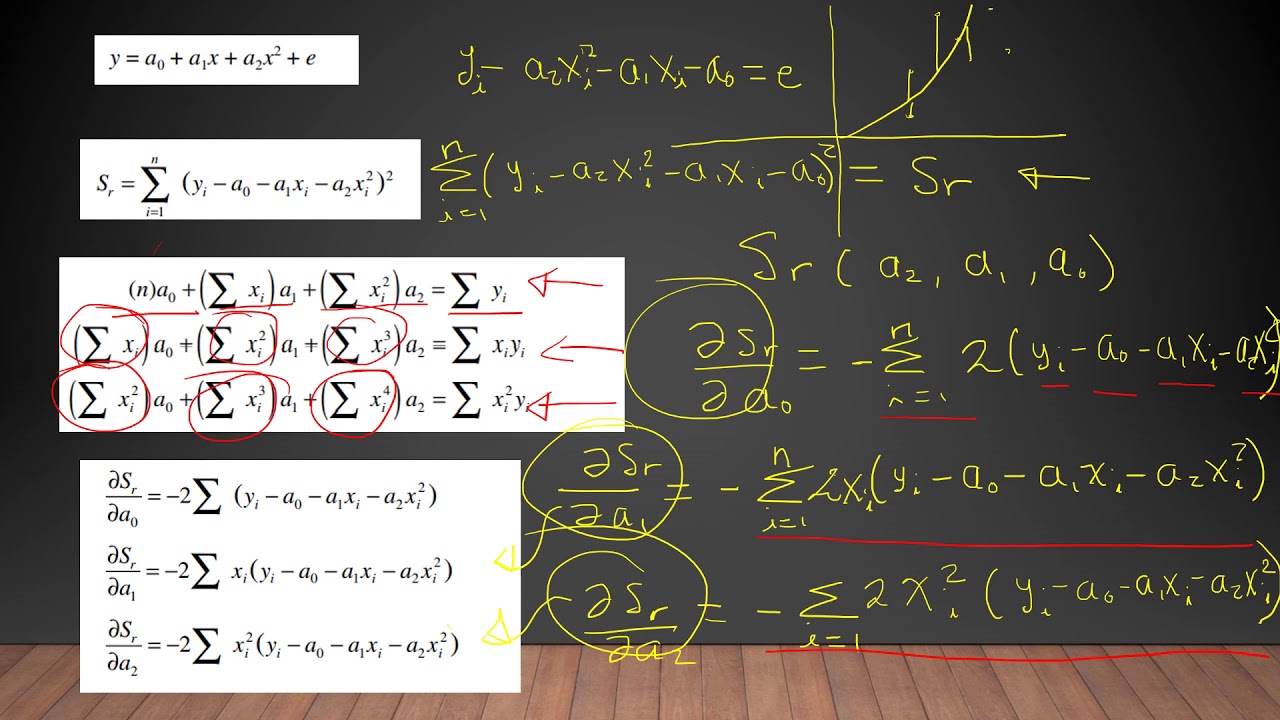 y = a₀ + a₁x + a₂x² + e
yᵢ − a₂xᵢ² − a₁xᵢ − a₀ = e
Sᵣ = ∑ᵢ₌₁ⁿ (yᵢ − a₀ − a₁xᵢ − a₂xᵢ²)²
∑ᵢ₌₁ⁿ (yᵢ − a₂xᵢ² − a₁xᵢ − a₀)² = Sr
Sr (a₂, a₁, a₀)
(n)a₀ + (∑ xᵢ)a₁ + (∑ xᵢ²)a₂ = ∑ yᵢ
(∑ xᵢ)a₀ + (∑ xᵢ²)a₁ + (∑ xᵢ³)a₂ = ∑ xᵢyᵢ
(∑ xᵢ²)a₀ + (∑ xᵢ³)a₁ + (∑ xᵢ⁴)a₂ = ∑ xᵢ²yᵢ
∂Sr/∂a₀ = −∑ᵢ₌₁ⁿ 2(yᵢ − a₀ − a₁xᵢ − a₂xᵢ²)
∂Sr/∂a₁ = −∑ᵢ₌₁ⁿ 2xᵢ(yᵢ − a₀ − a₁xᵢ − a₂xᵢ²)
∂Sr/∂a₂ = −∑ᵢ₌₁ 2xᵢ²(yᵢ − a₀ − a₁xᵢ − a₂xᵢ²)
∂Sᵣ/∂a₀ = −2∑ (yᵢ − a₀ − a₁xᵢ − a₂xᵢ²)
∂Sᵣ/∂a₁ = −2∑ xᵢ(yᵢ − a₀ − a₁xᵢ − a₂xᵢ²)
∂Sᵣ/∂a₂ = −2∑ xᵢ²(yᵢ − a₀ − a₁xᵢ − a₂xᵢ²)